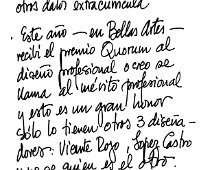 otros datos extracumcula
· Este año — en Bellas Artes —
recibí el premio Quorum al
diseño profesional o creo se
llama al mérito profesional
y esto es un gran honor
sólo lo tienen otros 3 diseña-
dores: Vicente Rojo, López Castro
y no se quien es el otro.